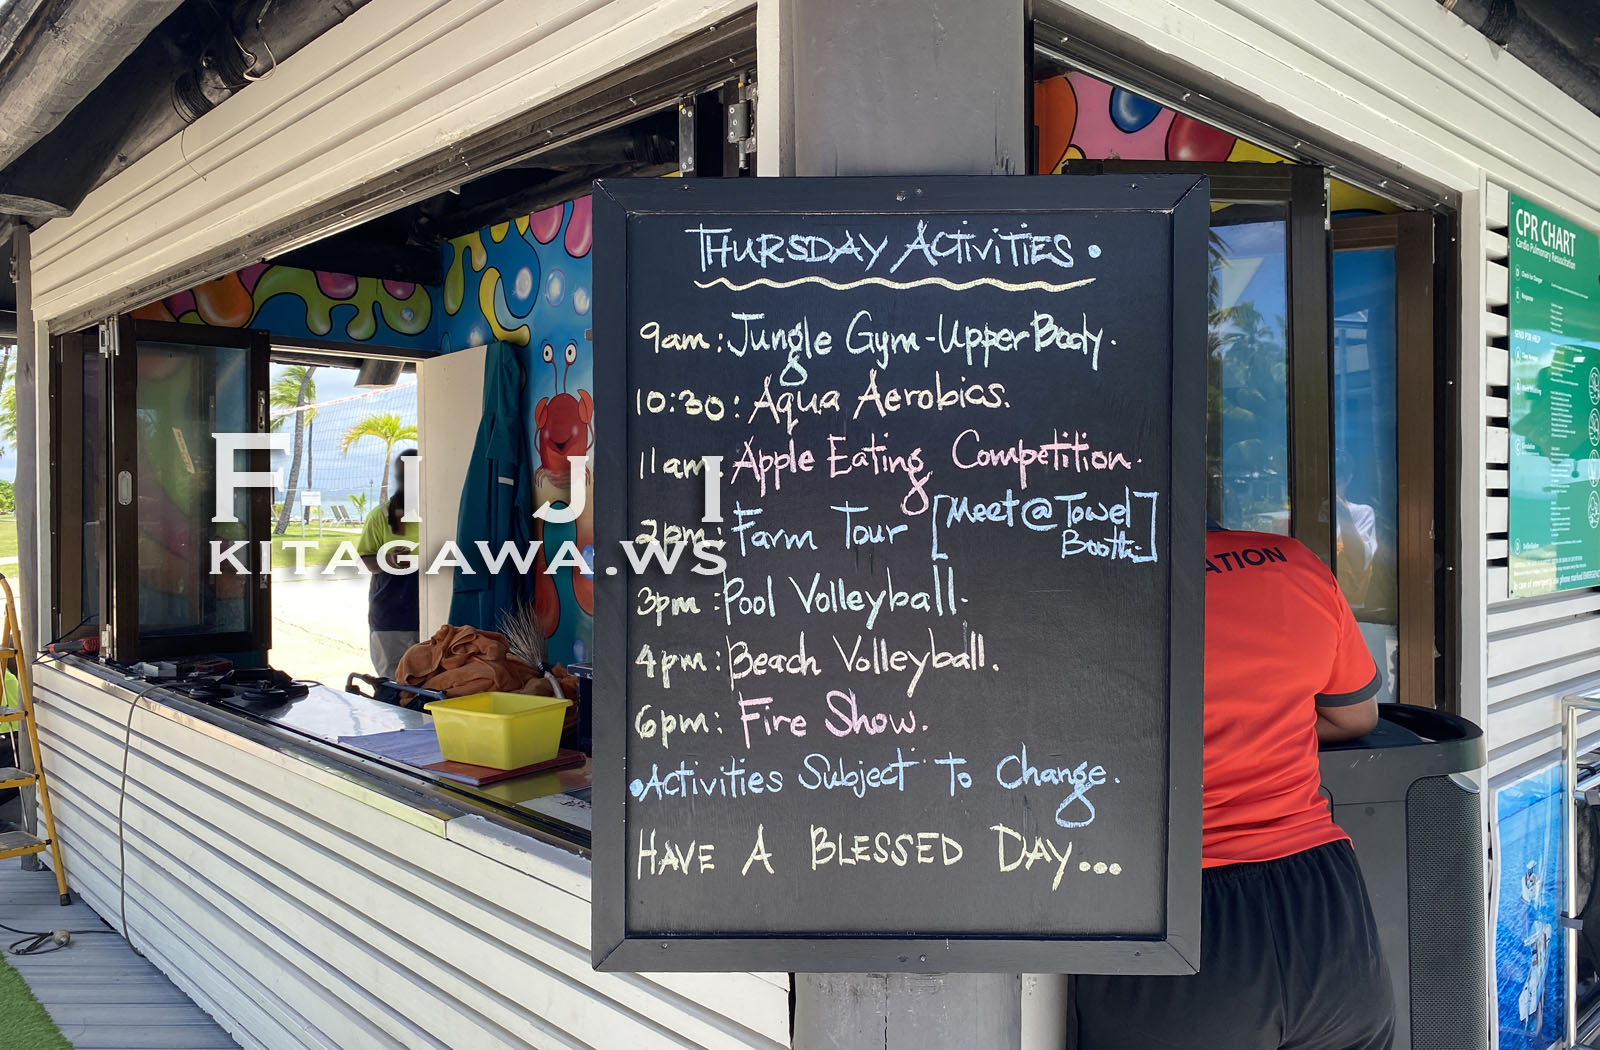 THURSDAY ACTIVITIES.
9am: Jungle Gym - Upper Body.
10:30: Aqua Aerobics.
11am: Apple Eating Competition.
2pm: Farm Tour [Meet @ Towel Booth.]
3pm: Pool Volleyball.
4pm: Beach Volleyball.
6pm: Fire Show.
•Activities Subject To Change.
HAVE A BLESSED DAY...
FIJI
KITAGAWA.WS
ATION
CPR CHART
Cardio Pulmonary Resuscitation